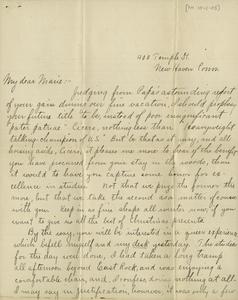 400 Temple St.
New Haven Conn.
My dear Marie:-
Judging from Papa's astounding report
of your gain during vacation, I should propose
your future title to be, instead of poor insignificant
"pater patriae" Cicero, nothing less than "heavyweight
talking-champion of U.S." But be that as it may, and all
joking aside, Cicero, it pleases me more to hear of the benefit
you have procured from your stay in the woods, than
it would to have you capture some honor for ex-
cellence in studies. Not that we prize the former the
more, but that we take the second as a matter of course
with you. Keep in as fine shape all winter now, if you
want to give us all the best of Christmas presents.
By the way, you will be interested in a queer experience
which befell myself and my desk yesterday. The studies
for the day were done, I had taken a long tramp
all afternoon beyond East Rock, and was enjoying a
comfortable chair, and, I confess, doing nothing at all.
I may say in justification, however, it was only a few